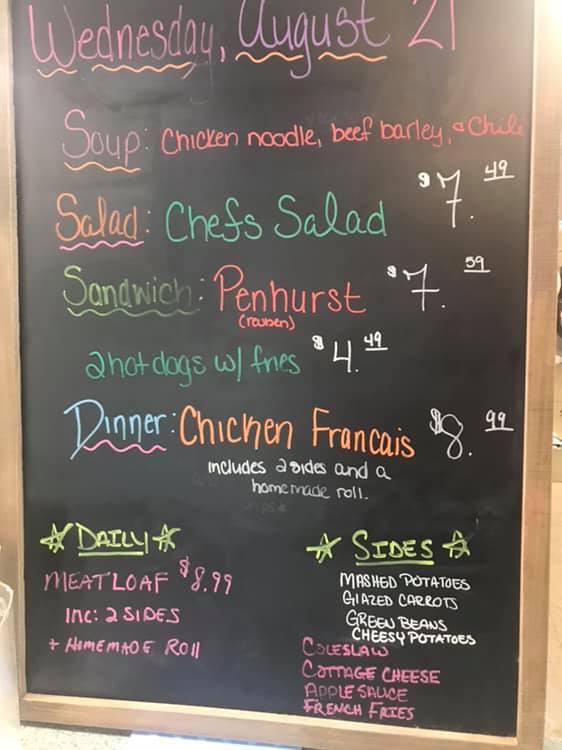 Wednesday, August 21
Soup: Chicken noodle, beef barley, & Chili
Salad: Chefs Salad $7.49
Sandwich: Penhurst $7.59
(reuben)
2 hot dogs w/ fries $4.49
Dinner: Chicken Francais $8.99
includes 2 sides and a
homemade roll.
☆ DAILY ☆
MEATLOAF $8.99
INC: 2 SIDES
+ HOMEMADE ROll
☆ SIDES ☆
MASHED POTATOES
GlAZED CARROTS
GREEN BEANS
CHEESY POTATOES
COLESLAW
COTTAGE CHEESE
APPLE SAUCE
FRENCH FRIES